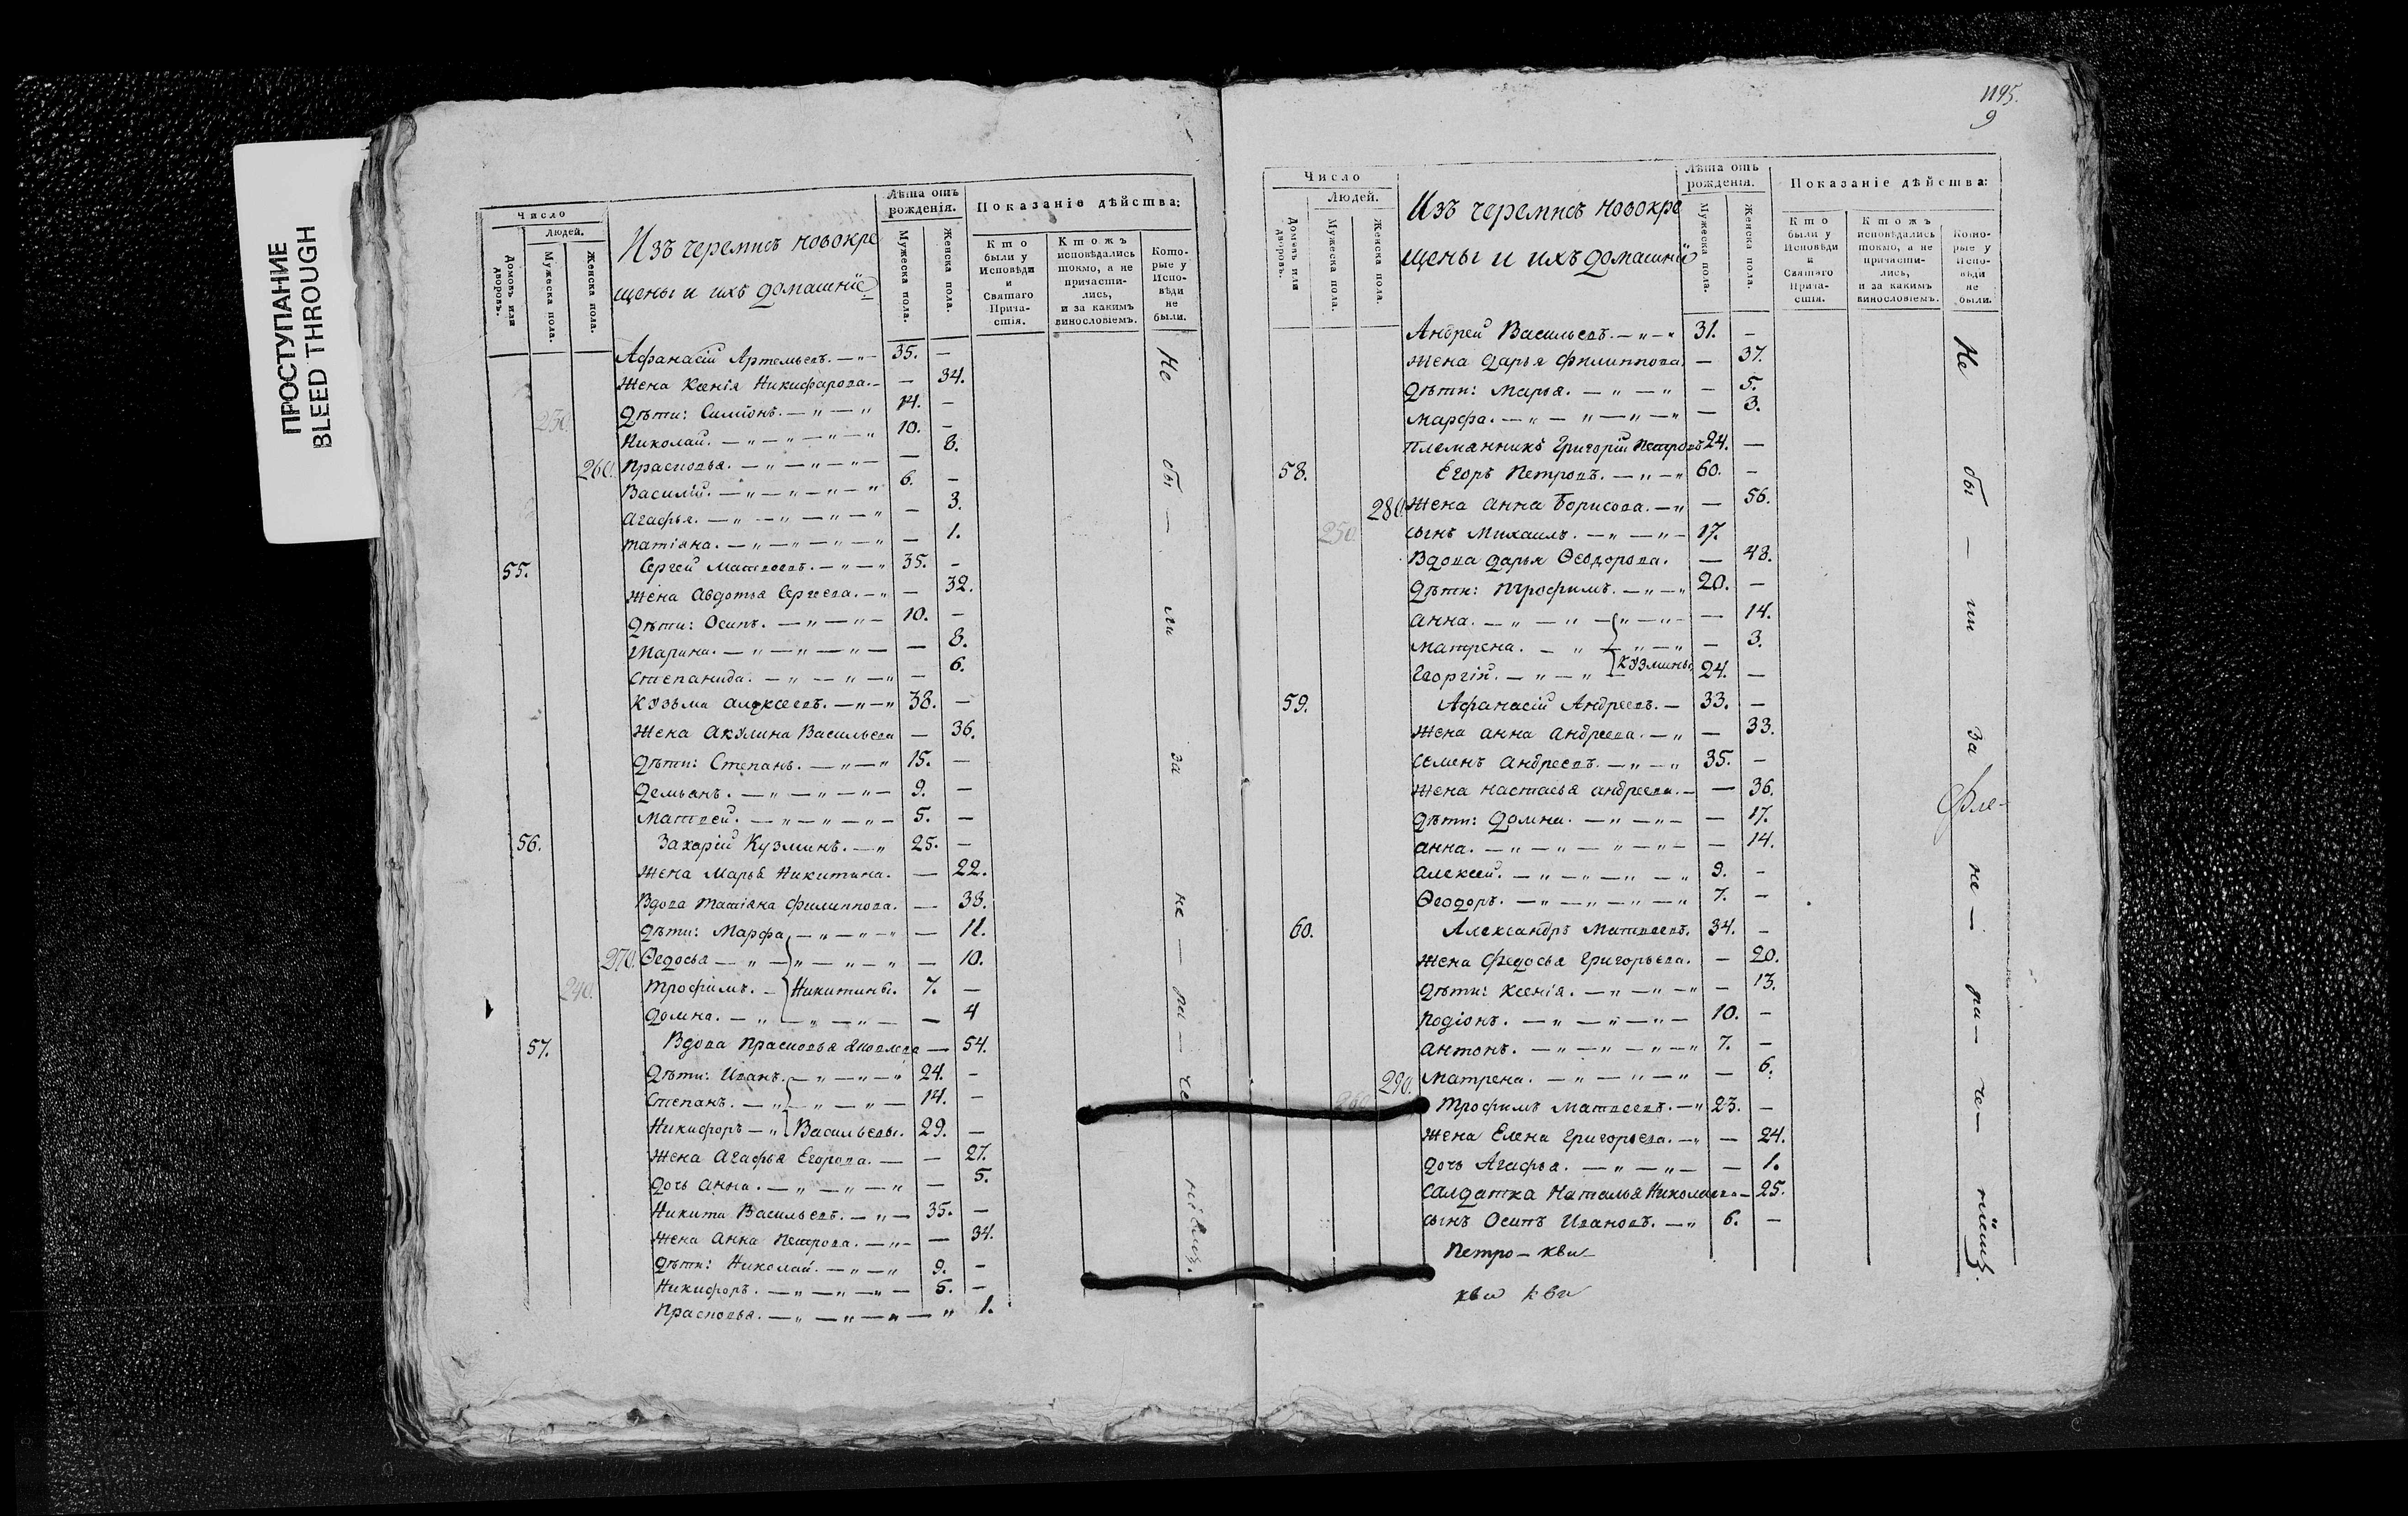 ПРОСТУПАНИЕ
BLEED THROUGH
Число
Людей.
Домовъ или дворовъ.
Мужеска пола.
Женска пола.
Изъ черемисъ новокре
щены и ихъ домашнiе
Лѣта отъ рожденія.
Мужеска пола.
Женска пола.
Показаніе дѣйства:
Кто были у Исповѣди и Святаго Причастія.
Ктожъ исповѣдались токмо, а не причастились, и за какимъ винословіемъ.
Которые у Исповѣди не были.
Афанасій Артемьевъ. — „ — 35. —
Жена Ксенія Никифарова. — — 34.
Дѣти: Симіонъ. — „ — „ 14. —
230. Николай. — „ — „ — „ — „ 10. —
260. Прасковья. — „ — „ — „ — — 8.
Василій. — „ — „ — „ — „ 6. —
Агафья. — „ — „ — „ — „ — 3.
Татіана. — „ — „ — „ — „ — 1.
55. Сергей Матвеевъ. — „ — „ 35. —
Жена Авдотья Сергеева. — „ — 32.
Дѣти: Осипъ. — „ — „ — 10. —
Марина. — „ — „ — „ — — 8.
Степанида. — „ — „ — „ — 6.
Кузьма Алексеевъ. — „ — „ 38. —
Жена Акулина Васильева — 36.
Дѣти: Степанъ. — „ — „ 15. —
Демьянъ. — „ — „ — „ — 9. —
Матвей. — „ — „ — „ — 5. —
56. Захарій Кузминъ. — „ 25. —
Жена Марья Никитина. — 22.
Вдова Татіана Филиппова. — 38.
Дѣти: Марфа — „ — „ — „ — 11.
270. Ѳедосья — „ — „ — „ — „ — 10.
240. Трофимъ. — Никитины. 7. —
Домна. — „ — „ — „ — — 4
57. Вдова Прасковья Яковлева — 54.
Дѣти: Иванъ. — „ — „ — „ 24. —
Степанъ. — „ — „ — „ — 14. —
Никифоръ — „ Васильевы. 29. —
Жена Агафья Егорова. — — 27.
Дочь Анна. — „ — „ — „ — 5.
Никита Васильевъ. — „ — 35. —
Жена Анна Петрова. — „ — — 34.
Дѣти: Николай. — „ — „ 9. —
Никифоръ. — „ — „ — „ — 5. —
Прасковья. — „ — „ — „ — „ 1.
Не бы — ли за не — ра — че
1195.
9
Число
Людей.
Домовъ или дворовъ.
Мужеска пола.
Женска пола.
Изъ черемисъ новокре
щены и ихъ домашнiй
Лѣта отъ рожденія.
Мужеска пола.
Женска пола.
Показаніе дѣйства:
Кто были у Исповѣди и Святаго Причастія.
Ктожъ исповѣдались токмо, а не причастились, и за какимъ винословіемъ.
Которые у Исповѣди не были.
Андрей Васильевъ. — „ — „ 31. —
Жена Дарья Филиппова. — 37.
Дѣти: Марья. — „ — „ — 5.
Марфа. — „ — „ — „ — „ — 3.
Племанникъ Григорій Петровъ 24. —
58. Егоръ Петровъ. — „ — „ 60. —
280. Жена Анна Борисова. — „ — 56.
250. Сынъ Михаилъ. — „ — „ — 17.
Вдова Дарья Ѳеодорова. — 48.
Дѣти: Трофимъ. — „ — „ 20. —
Анна. — „ — „ — „ — „ — — 14.
Матрена. — „ — „ — „ — 3.
Георгій. — „ — „ — Кузмины 24. —
59. Афанасій Андреевъ. — 33. —
Жена Анна Андреева. — „ — 33.
Семенъ Андреевъ. — „ — „ 35. —
Жена Настасья Андреева. — — 36.
Дѣти: Домна. — „ — „ — — 17.
Анна. — „ — „ — „ — „ — — 14.
Алексей. — „ — „ — „ — „ 9. —
Ѳеодоръ. — „ — „ — „ — „ 7. —
60. Александръ Матвеевъ. 34. —
Жена Федосья Григорьева. — 20.
Дѣти: Ксенія. — „ — „ — „ — 13.
Родіонъ. — „ — „ — „ — 10. —
Антонъ. — „ — „ — „ — „ 7. —
290. Матрена. — „ — „ — „ — 6.
260. Трофимъ Матвеевъ. — „ 23. —
Жена Елена Григорьева. — „ — 24.
Дочь Агафья. — „ — „ — — 1.
Салдатка Наталья Николаева — 25.
Сынъ Осипъ Ивановъ. — „ 6. —
Петро — кви —
кви кви
Не бы — ли за не — ра — че —